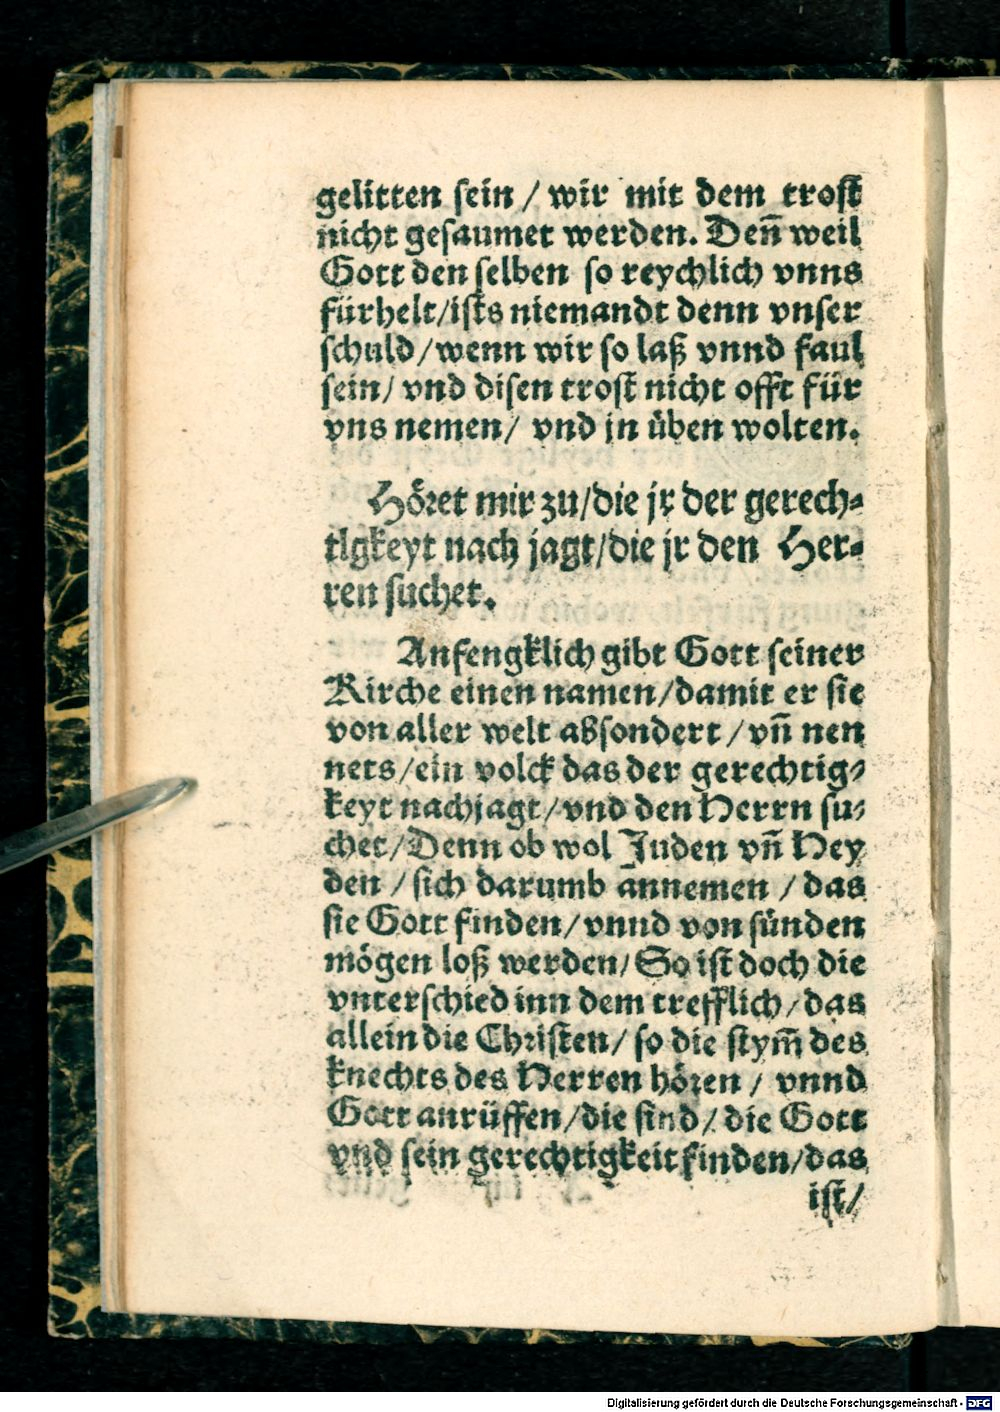 gelitten sein / wir mit dem trost
nicht gesaumet werden. Deñ weil
Gott den selben so reychlich vnns
fürhelt/ists niemandt denn vnser
schuld/wenn wir so laß vnnd faul
sein/ vnd disen trost nicht offt für
vns nemen/ vnd jn üben wolten.
Höret mir zu/die jr der gerech-
tigkeyt nach jagt/die jr den Her-
ren suchet.
Anfengklich gibt Gott seiner
Kirche einen namen/damit er sie
von aller welt absondert/vñ nen
nets/ein volck das der gerechtig-
keyt nachjagt/vnd den Herrn su-
chet/Denn ob wol Juden vñ Hey
den / sich darumb annemen / das
sie Gott finden/vnnd von sünden
mögen loß werden/So ist doch die
vnterschied inn dem trefflich/das
allein die Christen/ so die stym̃ des
knechts des Herren hören / vnnd
Gott anrüffen/die sind/ die Gott
vnd sein gerechtigkeit finden/das
ist/
Digitalisierung gefördert durch die Deutsche Forschungsgemeinschaft - DFG